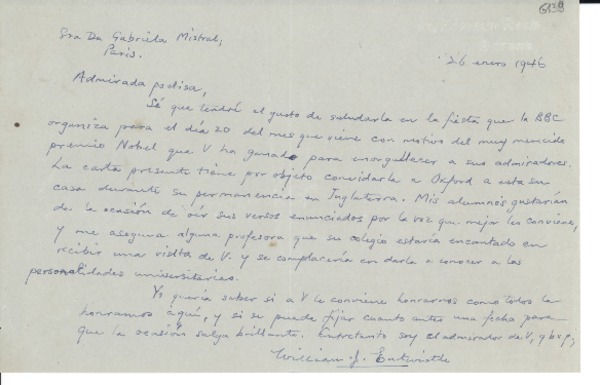 Sra Da Gabriela Mistral,
Paris.
26 enero 1946
Admirada poetisa,
Sé que tendré el gusto de saludarla en la fiesta que la BBC
organiza para el día 20 del mes que viene con motivo del muy merecido
premio Nobel que V ha ganado para enorgullecer a sus admiradores.
La carta presente tiene por objeto convidarla a Oxford a esta su
casa durante su permanencia en Inglaterra. Mis alumnos gustarían
de la ocasión de oir sus versos enunciados por la voz que mejor les conviene,
y me asegura alguna profesora que su colegio estaría encantado en
recibir una visita de V. y se complacería en darla a conocer a las
personalidades universitarias.
Yo quería saber si a V le conviene honrarnos como todos la
honramos aquí, y si se puede fijar cuanto antes una fecha para
que la ocasión salga brillante. Entretanto soy el admirador de V, q b s p,
William J. Entwistle